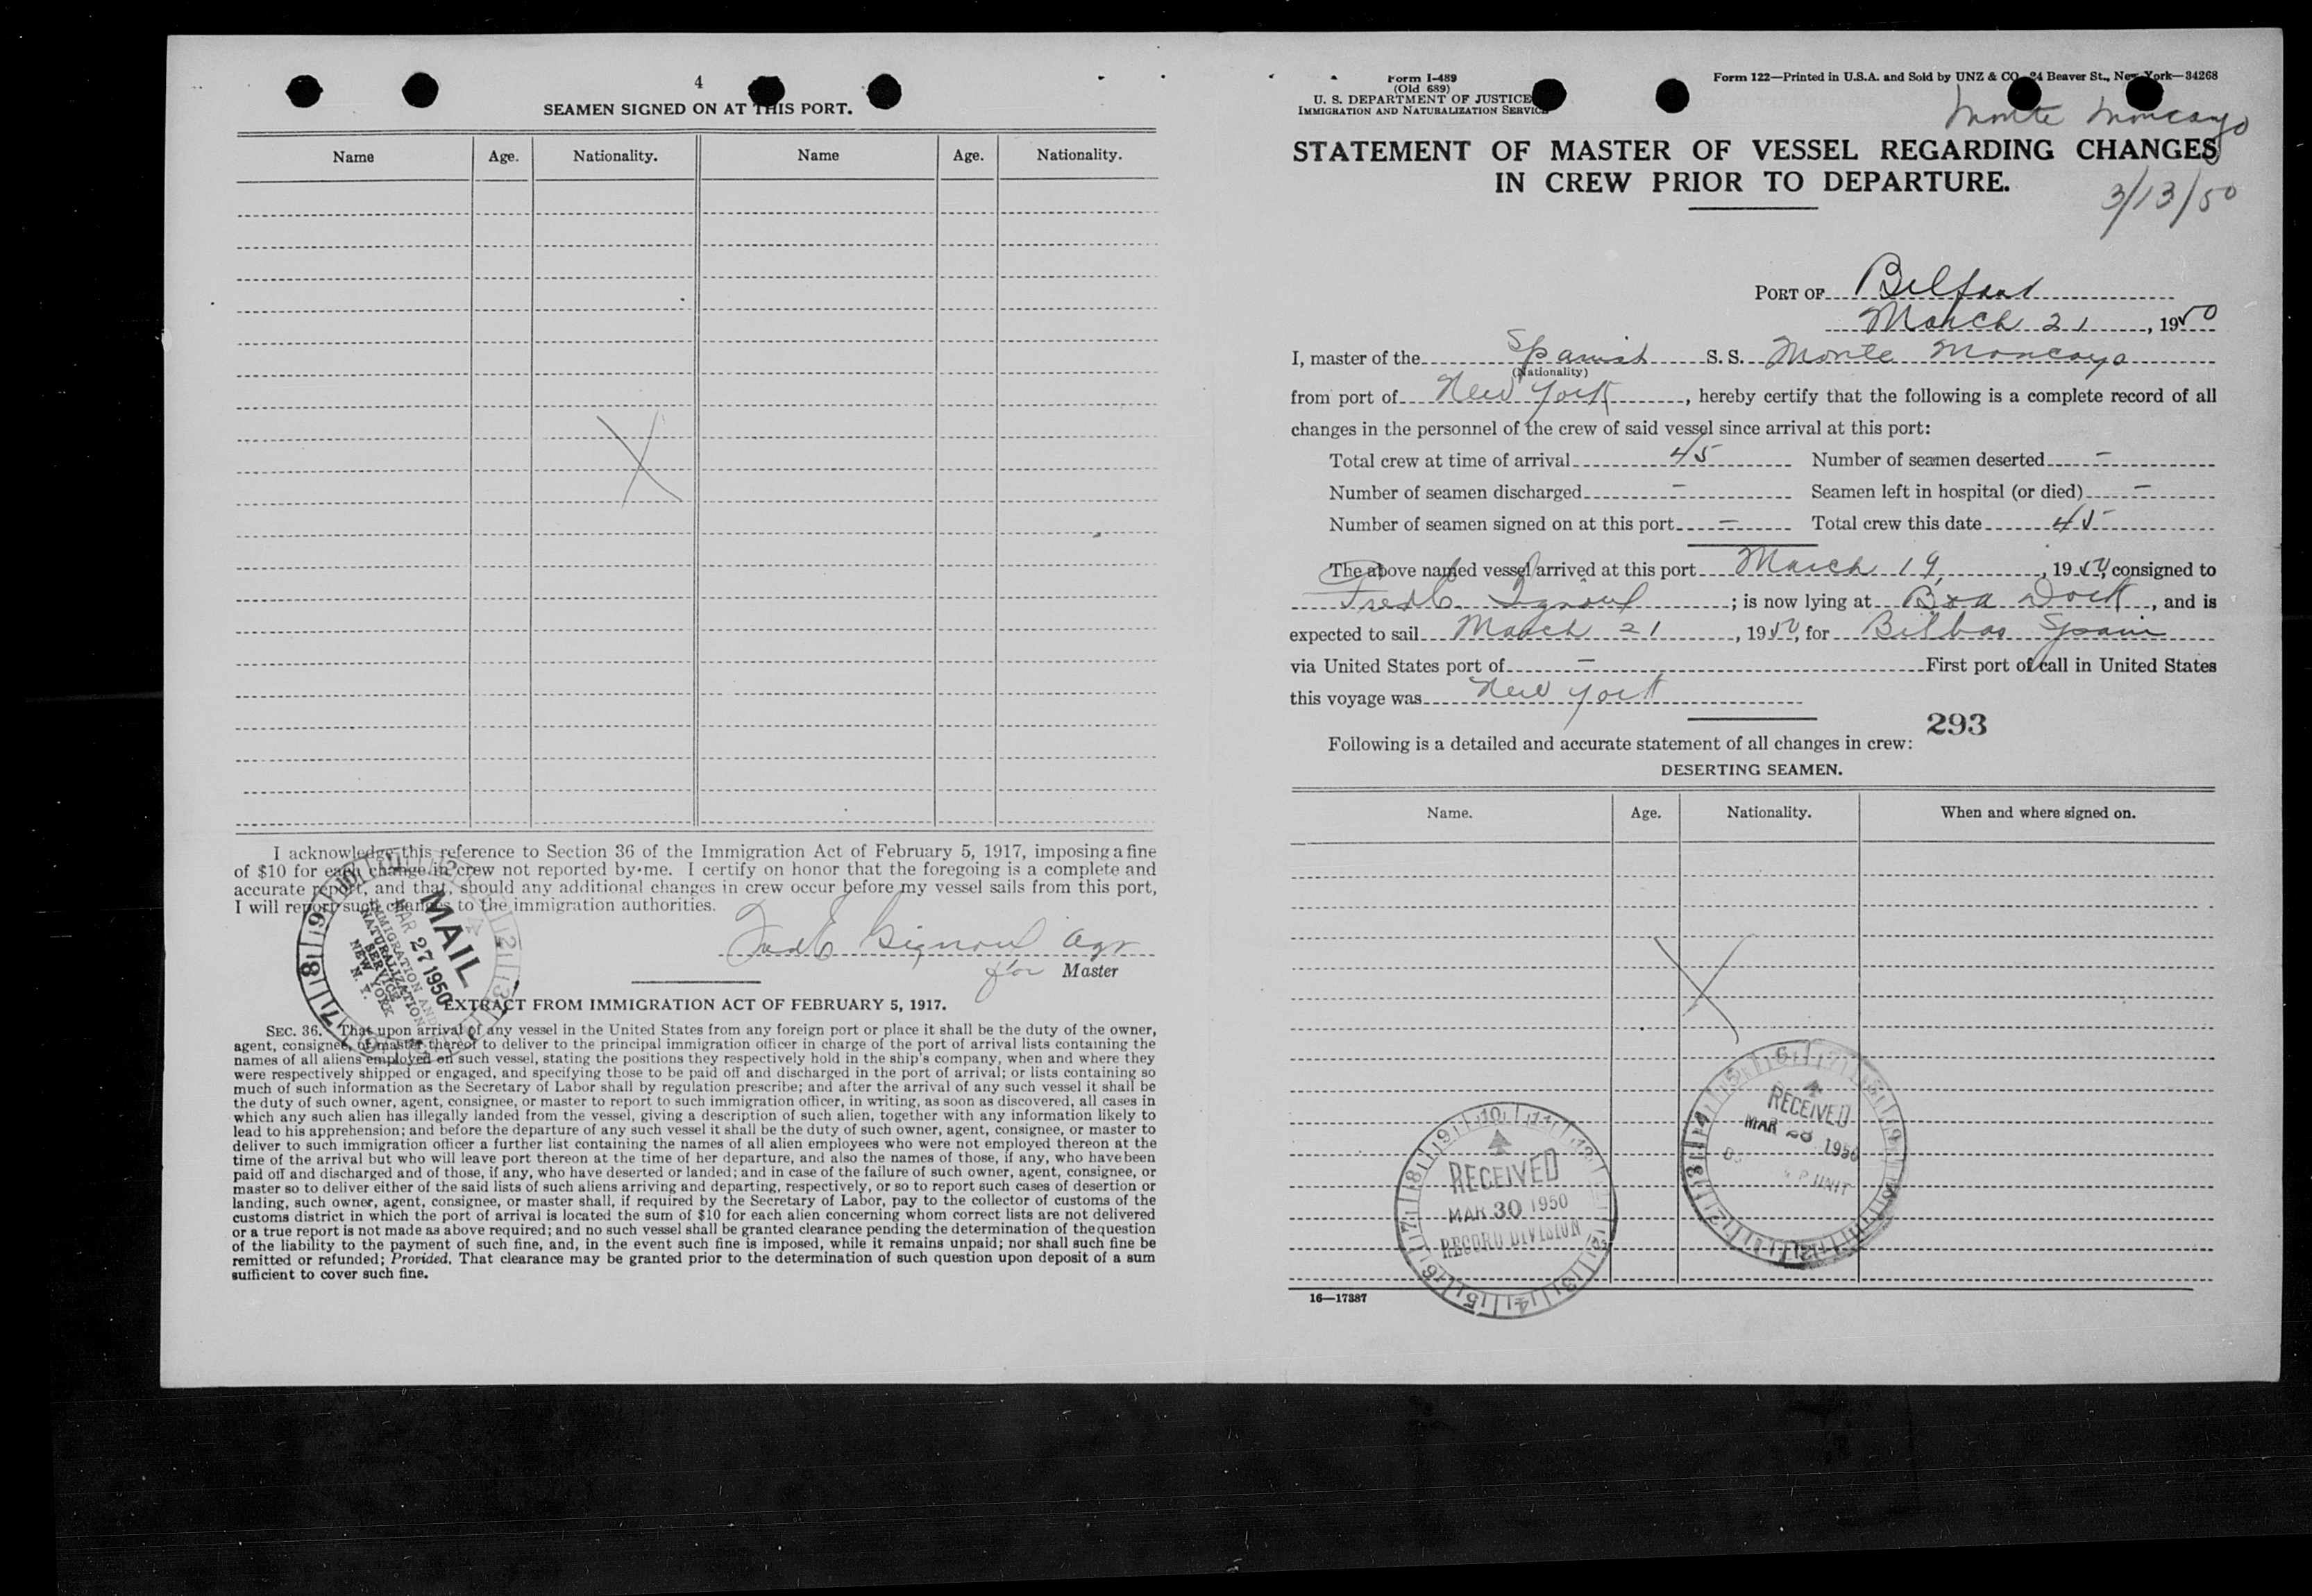 4
SEAMEN SIGNED ON AT THIS PORT.
Name Age. Nationality. Name Age. Nationality.
I acknowledge this reference to Section 36 of the Immigration Act of February 5, 1917, imposing a fine
of $10 for each change in crew not reported by me. I certify on honor that the foregoing is a complete and
accurate report, and that, should any additional changes in crew occur before my vessel sails from this port,
I will report such changes to the immigration authorities.
MAIL
MAR 27 1950
IMMIGRATION AND
NATURALIZATION
SERVICE
NEW YORK
N. Y.
for Master
EXTRACT FROM IMMIGRATION ACT OF FEBRUARY 5, 1917.
SEC. 36. That upon arrival of any vessel in the United States from any foreign port or place it shall be the duty of the owner,
agent, consignee, or master thereof to deliver to the principal immigration officer in charge of the port of arrival lists containing the
names of all aliens employed on such vessel, stating the positions they respectively hold in the ship's company, when and where they
were respectively shipped or engaged, and specifying those to be paid off and discharged in the port of arrival; or lists containing so
much of such information as the Secretary of Labor shall by regulation prescribe; and after the arrival of any such vessel it shall be
the duty of such owner, agent, consignee, or master to report to such immigration officer, in writing, as soon as discovered, all cases in
which any such alien has illegally landed from the vessel, giving a description of such alien, together with any information likely to
lead to his apprehension; and before the departure of any such vessel it shall be the duty of such owner, agent, consignee, or master to
deliver to such immigration officer a further list containing the names of all alien employees who were not employed thereon at the
time of the arrival but who will leave port thereon at the time of her departure, and also the names of those, if any, who have been
paid off and discharged and of those, if any, who have deserted or landed; and in case of the failure of such owner, agent, consignee, or
master so to deliver either of the said lists of such aliens arriving and departing, respectively, or so to report such cases of desertion or
landing, such owner, agent, consignee, or master shall, if required by the Secretary of Labor, pay to the collector of customs of the
customs district in which the port of arrival is located the sum of $10 for each alien concerning whom correct lists are not delivered
or a true report is not made as above required; and no such vessel shall be granted clearance pending the determination of the question
of the liability to the payment of such fine, and, in the event such fine is imposed, while it remains unpaid; nor shall such fine be
remitted or refunded; Provided, That clearance may be granted prior to the determination of such question upon deposit of a sum
sufficient to cover such fine.
Form I-489
(Old 689)
U. S. DEPARTMENT OF JUSTICE
IMMIGRATION AND NATURALIZATION SERVICE
Form 122—Printed in U.S.A. and Sold by UNZ & CO. 24 Beaver St., New York—34268
Monte Moncayo
STATEMENT OF MASTER OF VESSEL REGARDING CHANGES
IN CREW PRIOR TO DEPARTURE.
3/13/50
PORT OF
March 21, 1950
I, master of the Spanish S. S. Monte Moncayo
(Nationality)
from port of New York, hereby certify that the following is a complete record of all
changes in the personnel of the crew of said vessel since arrival at this port:
Total crew at time of arrival 45 Number of seamen deserted -
Number of seamen discharged - Seamen left in hospital (or died) -
Number of seamen signed on at this port - Total crew this date 45
The above named vessel arrived at this port March 19, 1950, consigned to
; is now lying at Dock, and is
expected to sail March 21, 1950, for Bilbao Spain
via United States port of - First port of call in United States
this voyage was New York
293
Following is a detailed and accurate statement of all changes in crew:
DESERTING SEAMEN.
Name. Age. Nationality. When and where signed on.
RECEIVED
MAR 1950
UNIT
RECEIVED
MAR 30 1950
RECORD DIVISION
16—17387